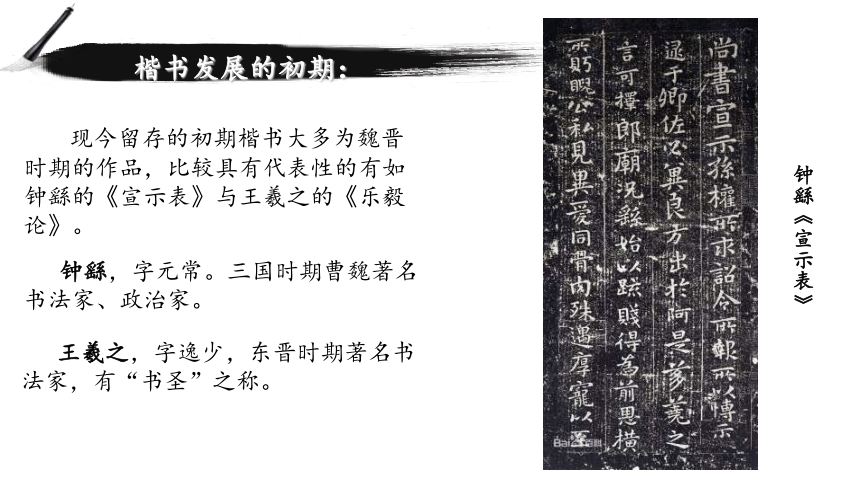 楷书发展的初期：
现今留存的初期楷书大多为魏晋
时期的作品，比较具有代表性的有如
钟繇的《宣示表》与王羲之的《乐毅
论》。
钟繇，字元常。三国时期曹魏著名
书法家、政治家。
王羲之，字逸少，东晋时期著名书
法家，有“书圣”之称。
尚書宣示孫權所求詔令所報所以博示
逮于卿佐必冀良方出於阿是芻蕘之
言可擇郎廟況繇始以疏賤得為前恩橫
所眄睨公私見異愛同骨肉殊遇厚寵以至
钟繇《宣示表》